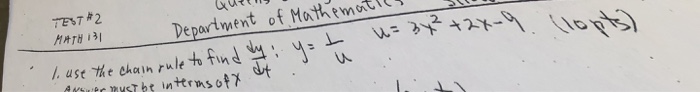 TEST #2
MATH 131
Department of Mathematics
1. use the chain rule to find dy/dt : y = 1/u u = 3x² + 2x - 9. (10 pts)
Answer must be in terms of x